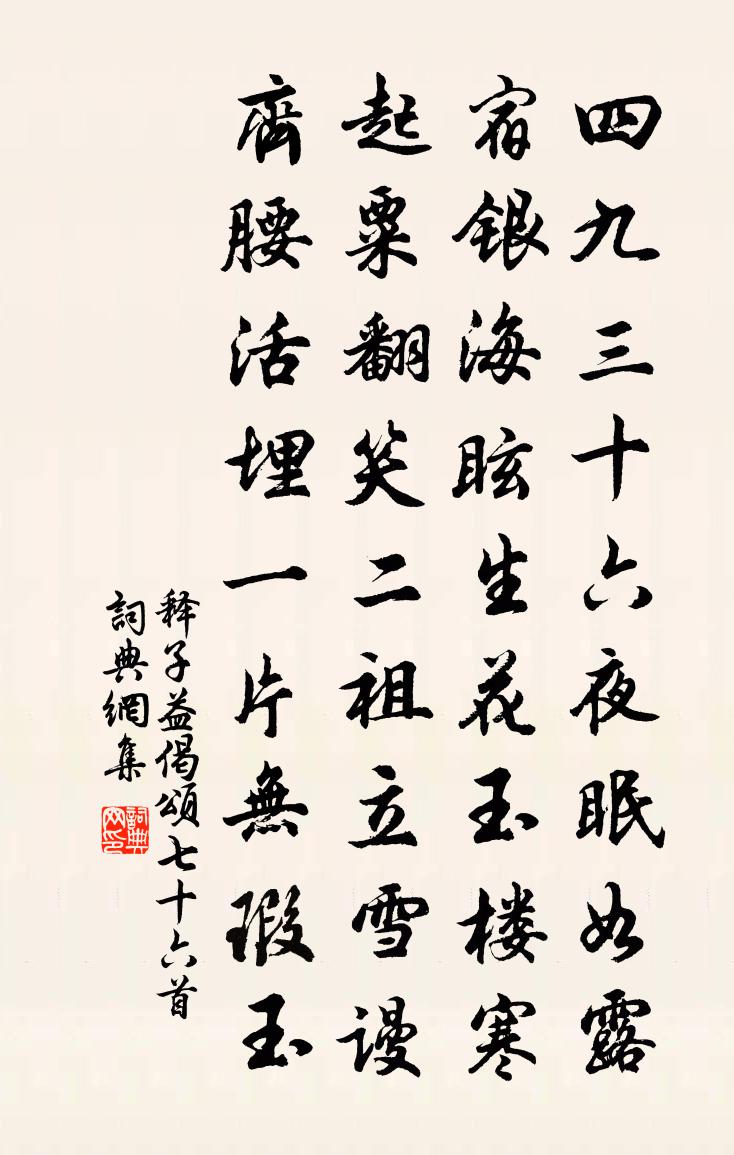 四九三十六夜眠如露
宿银海眩生花玉楼寒
起粟翻笑二祖立雪谩
齊腰活埋一片無瑕玉
释子益偈頌七十六首
詞典網集
詞典網印